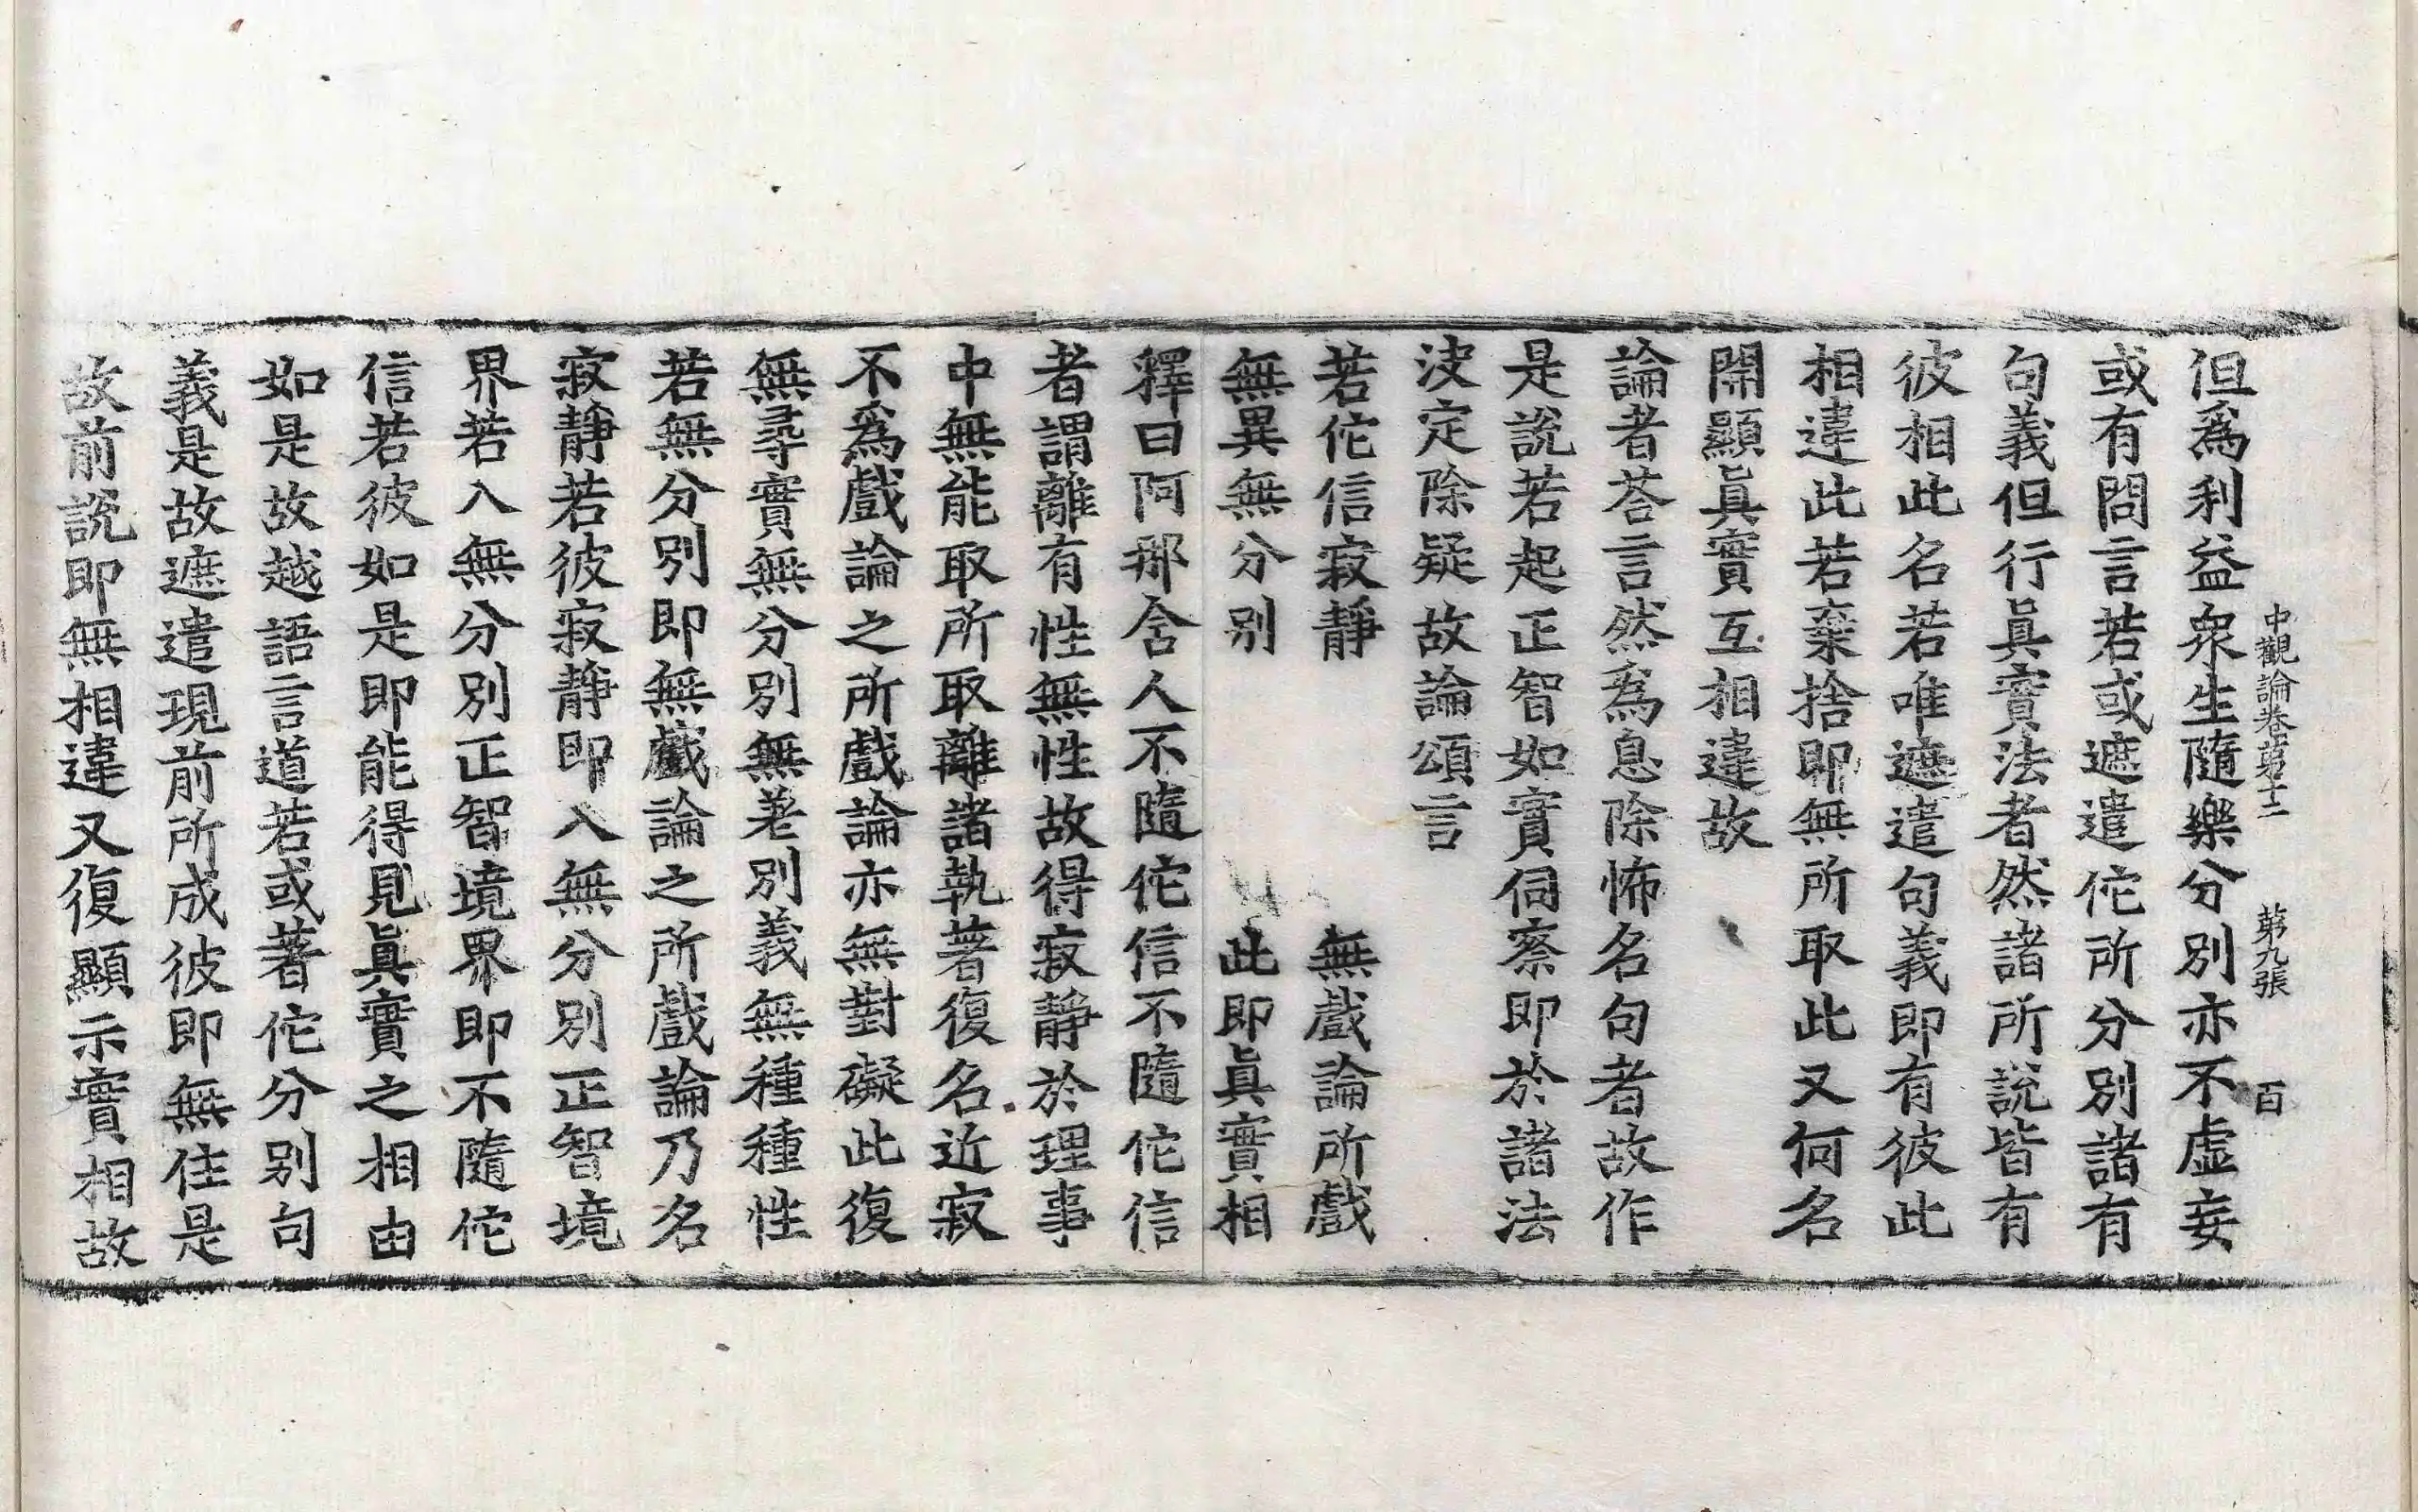 中觀論卷第十二 第九張 百
但爲利益衆生隨樂分別亦不虛妄
或有問言若或遮遣佗所分別諸有
句義但行眞實法者然諸所說皆有
彼相此名若唯遮遣句義即有彼此
相違此若棄捨即無所取此又何名
開顯眞實互相違故
論者荅言然爲息除怖名句者故作
是說若起正智如實伺察即於諸法
決定除疑故論頌言
若佗信寂靜 無戲論所戲
無異無分別 此即眞實相
釋曰阿那含人不隨佗信不隨佗信
者謂離有性無性故得寂靜於理事
中無能取所取離諸執著復名近寂
不爲戲論之所戲論亦無對礙此復
無尋實無分別無差別義無種種性
若無分別即無戲論之所戲論乃名
寂靜若彼寂靜即入無分別正智境
界若入無分別正智境界即不隨佗
信若彼如是即能得見眞實之相由
如是故越語言道若或著佗分別句
義是故遮遣現前所成彼即無佳是
故前說即無相違又復顯示實相故